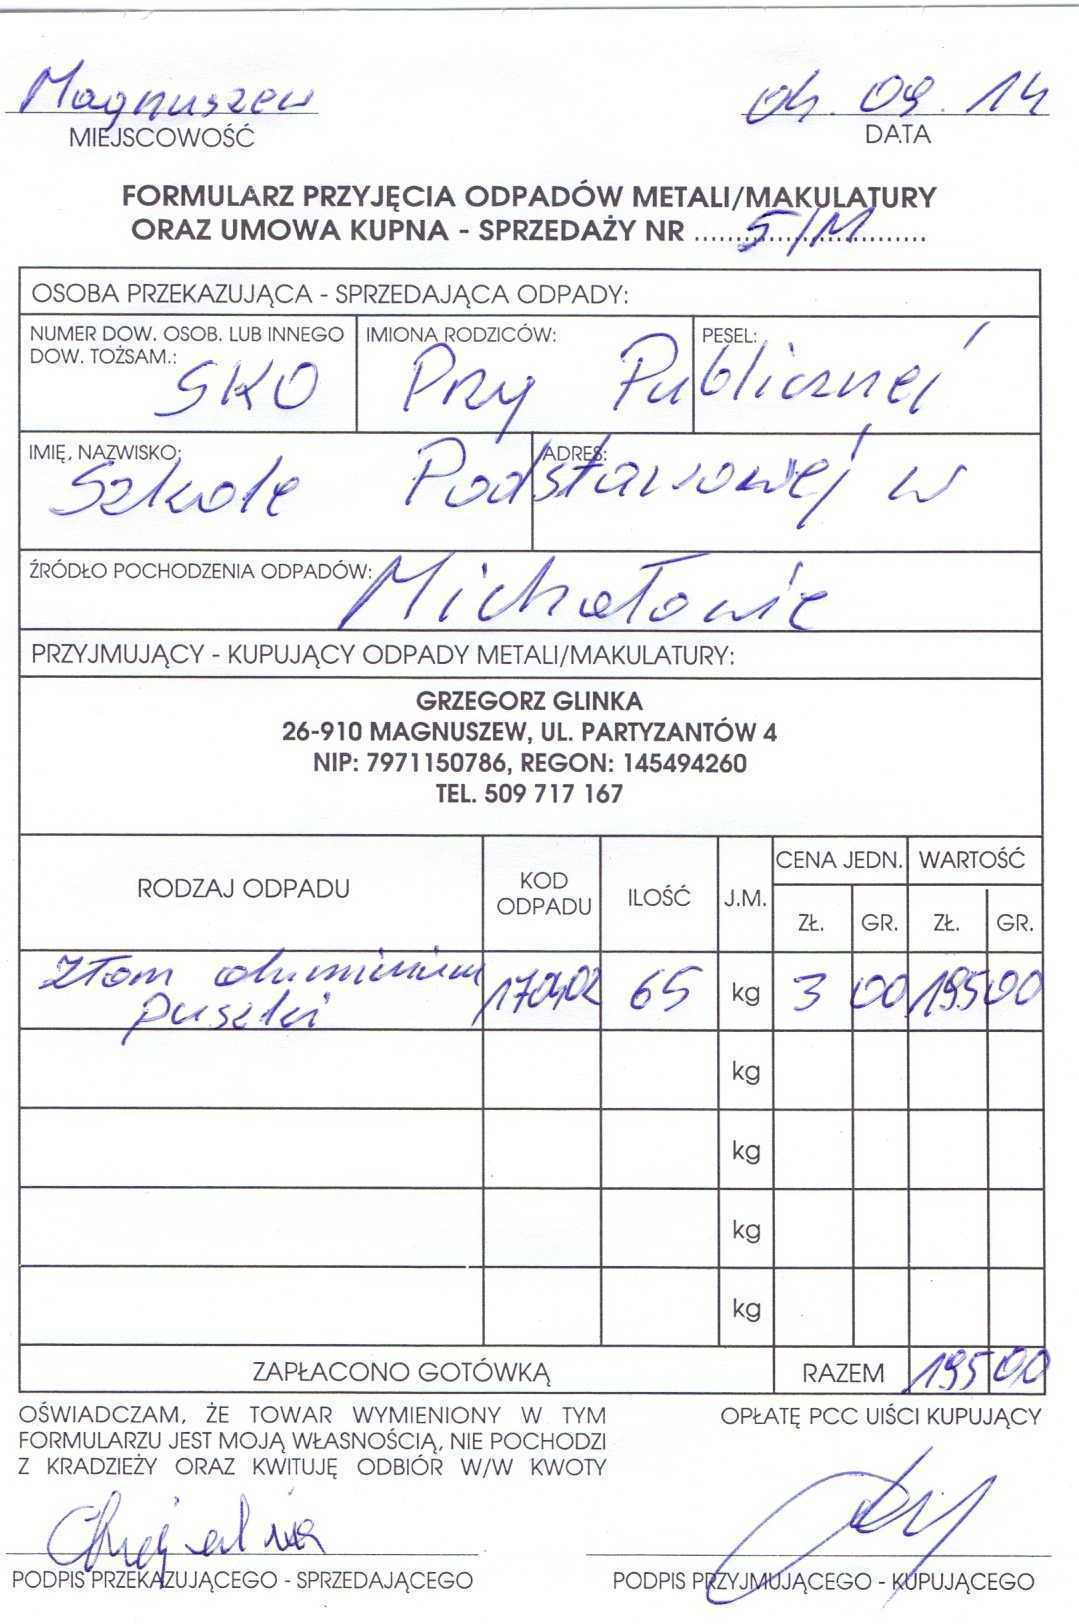 Magnuszew 04.09.14
MIEJSCOWOŚĆ DATA
FORMULARZ PRZYJĘCIA ODPADÓW METALI/MAKULATURY
ORAZ UMOWA KUPNA - SPRZEDAŻY NR ..... 5/M .....
OSOBA PRZEKAZUJĄCA - SPRZEDAJĄCA ODPADY:
NUMER DOW. OSOB. LUB INNEGO IMIONA RODZICÓW: PESEL:
DOW. TOŻSAM.:
SKO Przy Publicznej
IMIĘ, NAZWISKO: ADRES:
Szkole Podstawowej w
ŹRÓDŁO POCHODZENIA ODPADÓW: Michałowie
PRZYJMUJĄCY - KUPUJĄCY ODPADY METALI/MAKULATURY:
GRZEGORZ GLINKA
26-910 MAGNUSZEW, UL. PARTYZANTÓW 4
NIP: 7971150786, REGON: 145494260
TEL. 509 717 167
RODZAJ ODPADU KOD ODPADU ILOŚĆ J.M. CENA JEDN. WARTOŚĆ
ZŁ. GR. ZŁ. GR.
Złom aluminium 170402 65 kg 3 00 195 00
puszki
kg
kg
kg
kg
ZAPŁACONO GOTÓWKĄ RAZEM 195 00
OŚWIADCZAM, ŻE TOWAR WYMIENIONY W TYM OPŁATĘ PCC UIŚCI KUPUJĄCY
FORMULARZU JEST MOJĄ WŁASNOŚCIĄ, NIE POCHODZI
Z KRADZIEŻY ORAZ KWITUJĘ ODBIÓR W/W KWOTY
PODPIS PRZEKAZUJĄCEGO - SPRZEDAJĄCEGO PODPIS PRZYJMUJĄCEGO - KUPUJĄCEGO